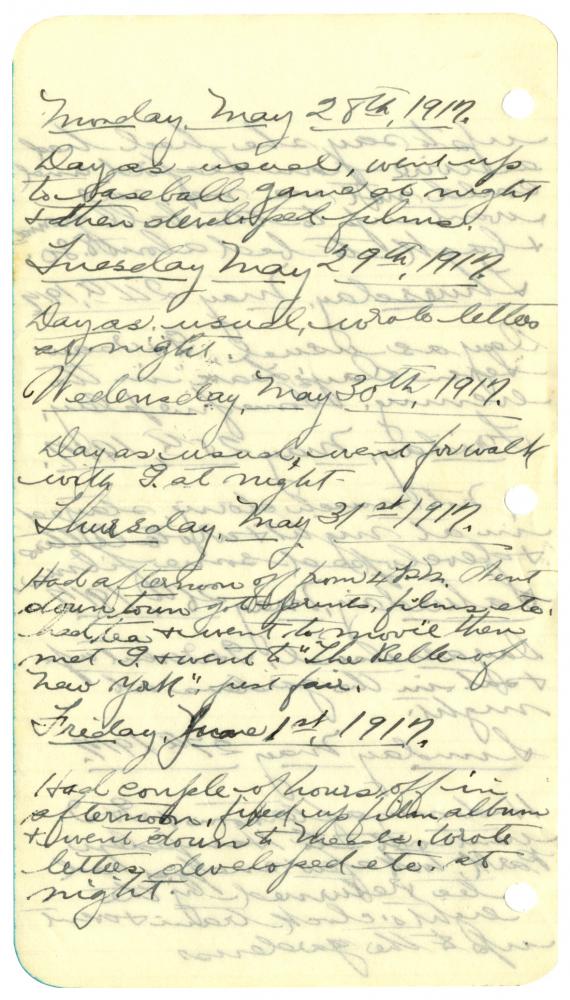 Monday, May 28th, 1917.
Day as usual, went up
to baseball game at night
& then developed films.
Tuesday May 29th, 1917.
Day as usual, wrote letters
at night.
Wedensday, May 30th, 1917.
Day as usual, went for walk
with G. at night.
Thursday, May 31st, 1917.
Had afternoon off from 4 Went
down town got prints, films, etc.
had tea & went to movie then
met G. & went to "The Belle of
New York", just fair.
Friday, June 1st, 1917.
Had couple of hours off in
afternoon, fixed up film album
& went down to Meads. Wrote
letters, developed etc. at
night.